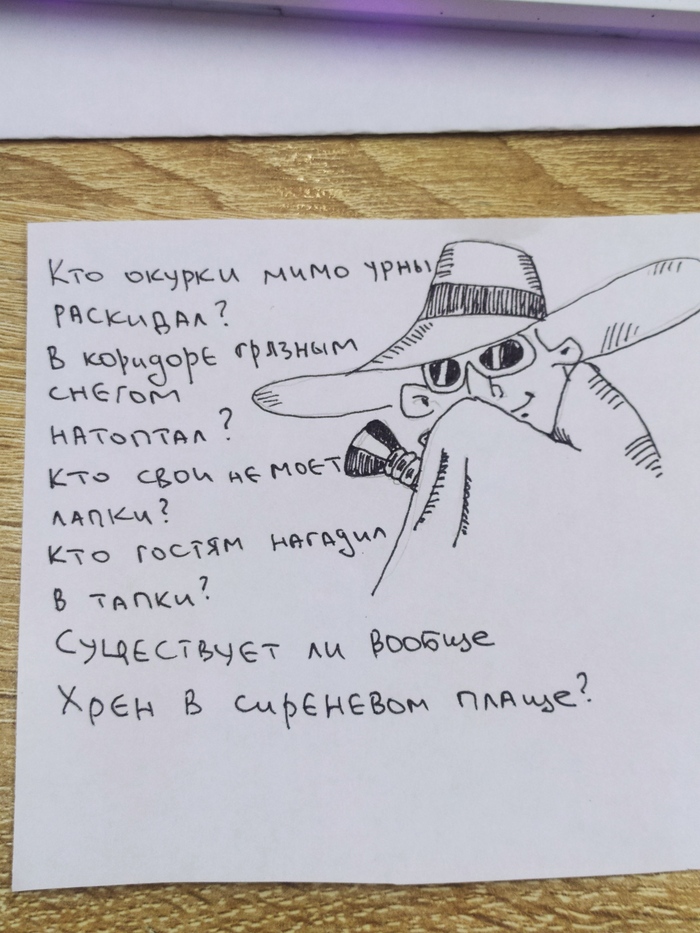 Кто окурки мимо урны
раскидал?
В коридоре грязным
снегом
натоптал?
Кто свои не моет
лапки?
Кто гостям нагадил
в тапки?
Существует ли вообще
Хрен в сиреневом плаще?